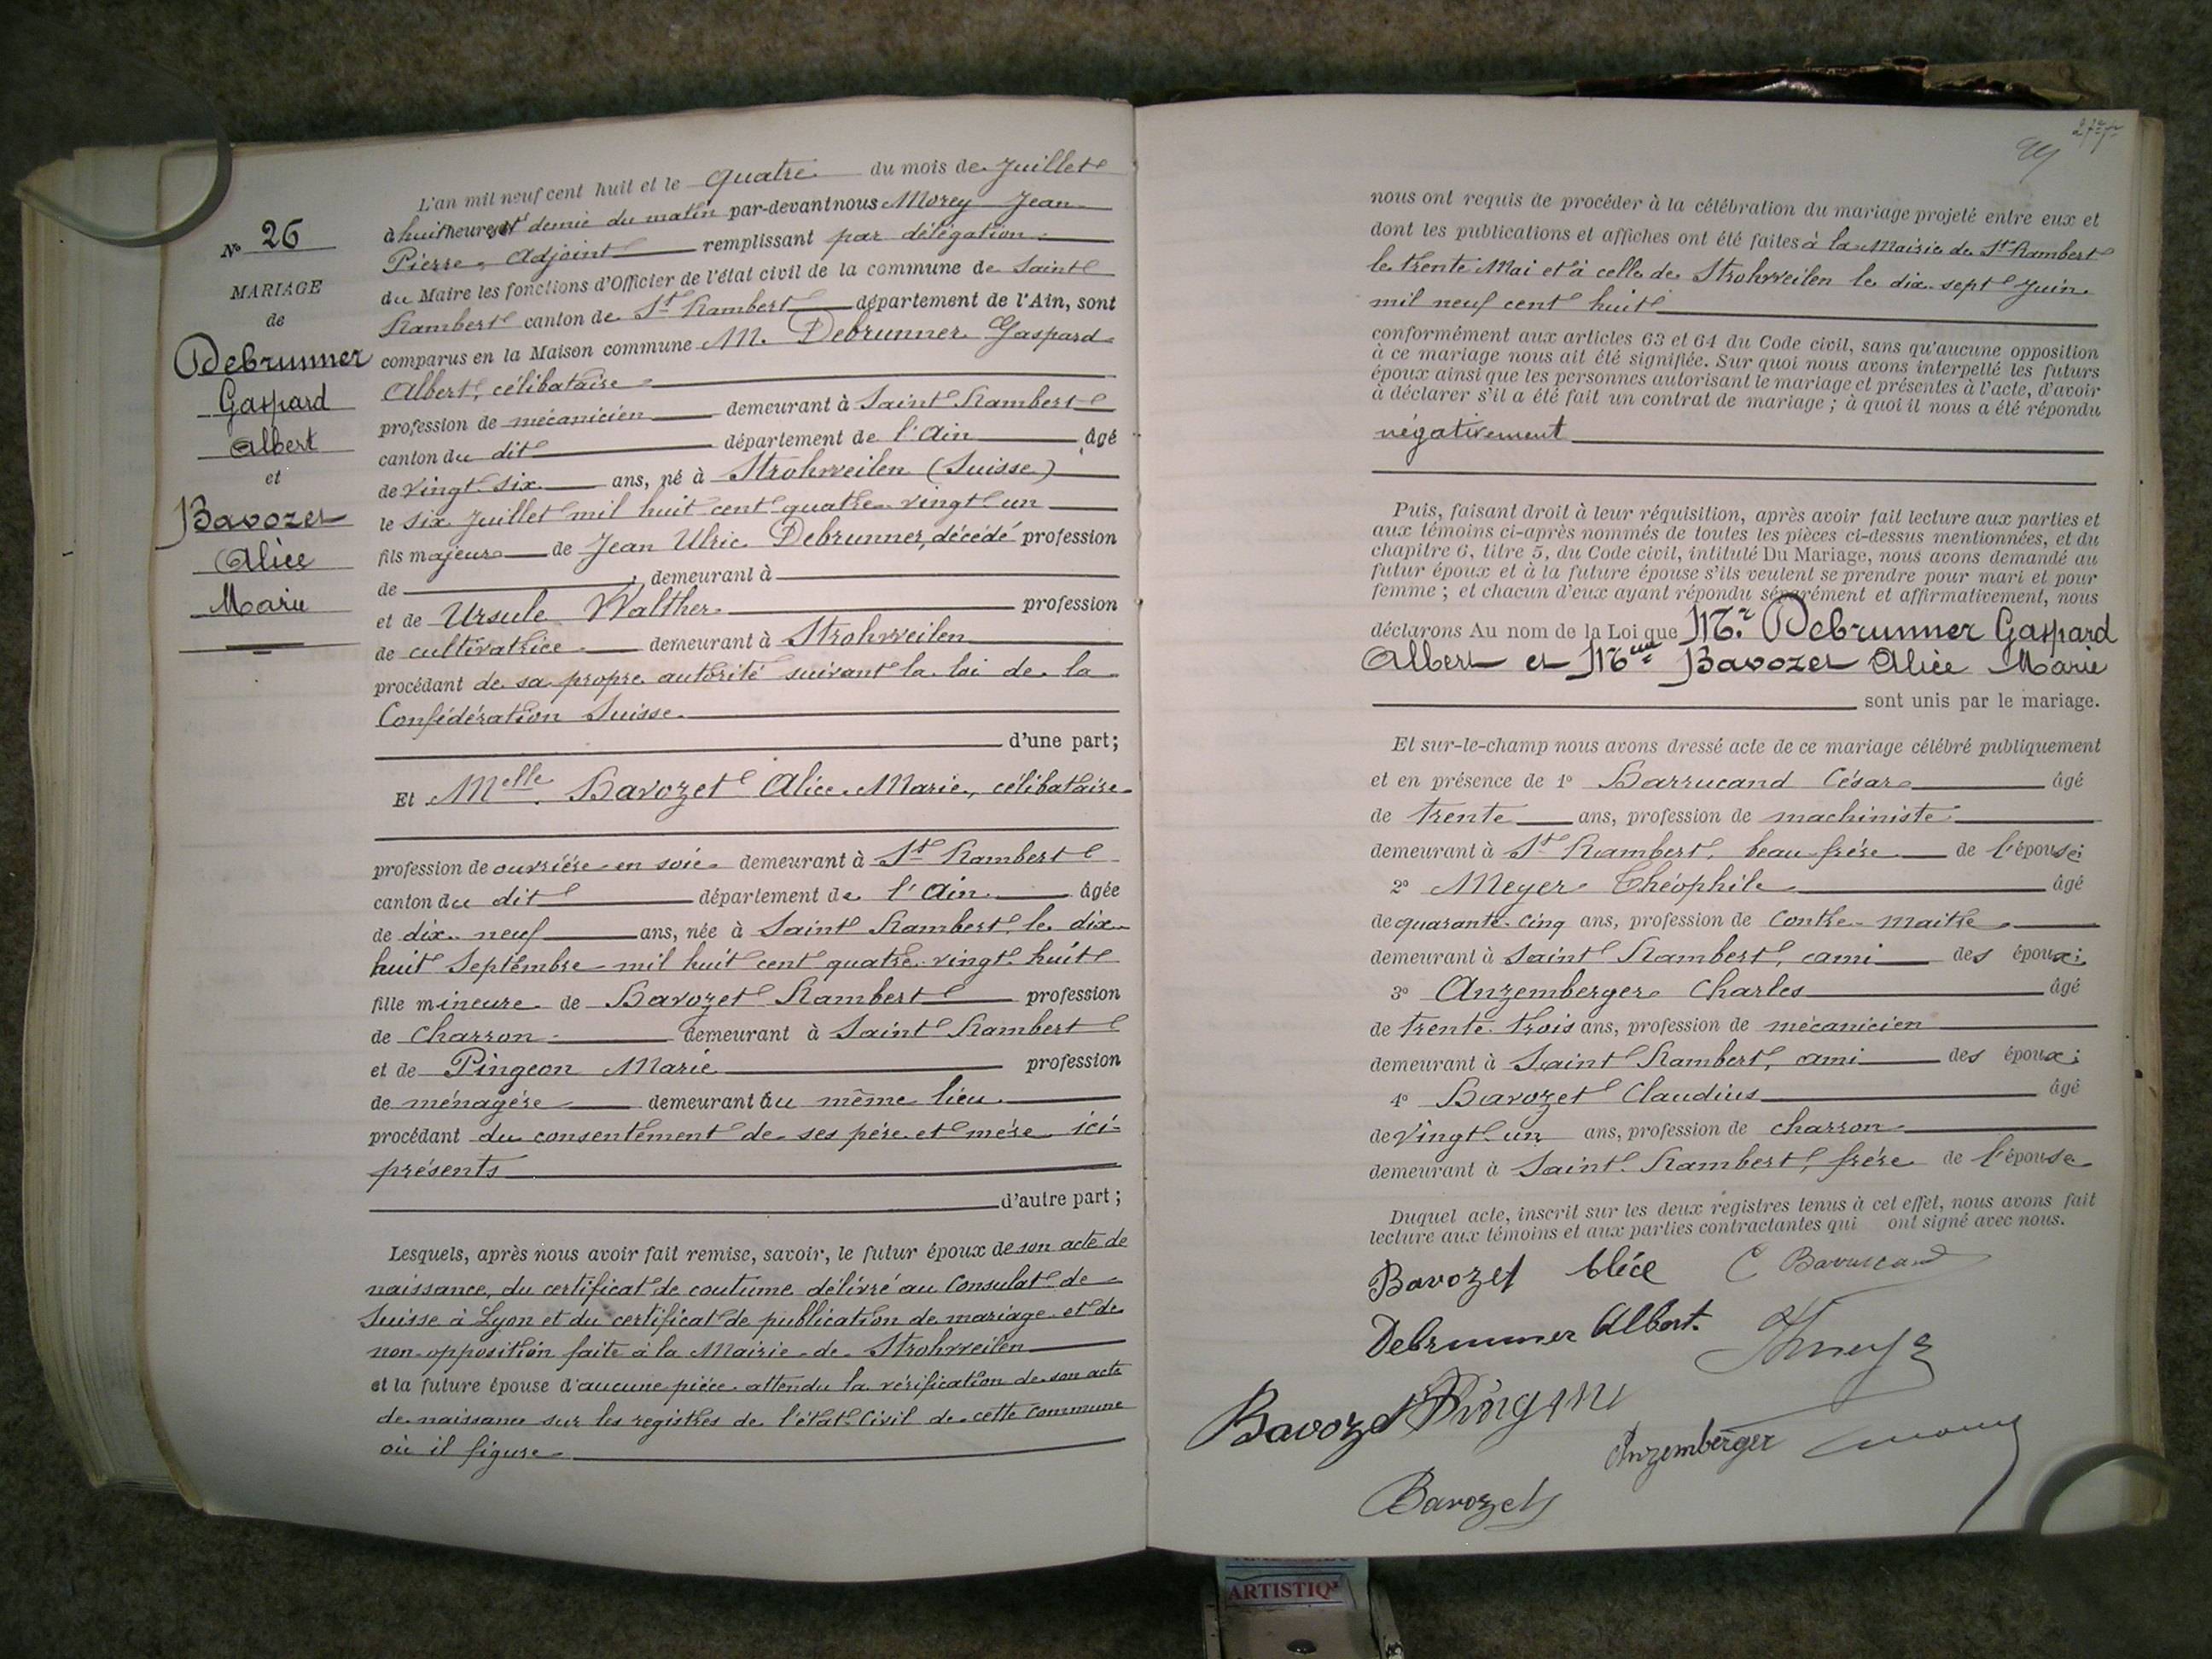 N° 26
MARIAGE
de
Debrunner
Gaspard
Albert
et
Bavozet
Alice
Marie
L'an mil neuf cent huit et le quatre du mois de Juillet
à huit heures et demie du matin par-devant nous Morey Jean
Pierre, Adjoint remplissant par délégation
du Maire les fonctions d'Officier de l'état civil de la commune de Saint
Rambert canton de St Rambert département de l'Ain, sont
comparus en la Maison commune M. Debrunner Gaspard
Albert, célibataire
profession de mécanicien demeurant à Saint Rambert
canton du dit département de l'Ain âgé
de vingt-six ans, né à Strohweilen (Suisse)
le six Juillet mil huit cent quatre-vingt-un
fils majeur de Jean Ulric Debrunner, décédé profession
de , demeurant à
et de Ursule Walther profession
de cultivatrice demeurant à Strohweilen
procédant de sa propre autorité suivant la loi de la
Confédération Suisse.
d'une part;
Et Melle Bavozet Alice Marie, célibataire
profession de ouvrière en soie demeurant à St Rambert
canton du dit département de l'Ain âgée
de dix-neuf ans, née à Saint Rambert, le dix-
huit Septembre mil huit cent quatre-vingt-huit
fille mineure de Bavozet Rambert profession
de charron demeurant à Saint Rambert
et de Pingeon Marie profession
de ménagère demeurant au même lieu.
procédant du consentement de ses père et mère ici-
présents
d'autre part;
Lesquels, après nous avoir fait remise, savoir, le futur époux de son acte de
naissance, du certificat de coutume délivré au Consulat de
Suisse à Lyon et du certificat de publication de mariage et de
non-opposition faite à la Mairie de Strohweilen
et la future épouse d'aucune pièce attendu la vérification de son acte
de naissance sur les registres de l'état-Civil de cette commune
où il figure
277
nous ont requis de procéder à la célébration du mariage projeté entre eux et
dont les publications et affiches ont été faites à la Mairie de St Rambert
le trente Mai et à celle de Strohweilen le dix-sept Juin
mil neuf cent huit
conformément aux articles 63 et 64 du Code civil, sans qu'aucune opposition
à ce mariage nous ait été signifiée. Sur quoi nous avons interpellé les futurs
époux ainsi que les personnes autorisant le mariage et présentes à l'acte, d'avoir
à déclarer s'il a été fait un contrat de mariage; à quoi il nous a été répondu
négativement
Puis, faisant droit à leur réquisition, après avoir fait lecture aux parties et
aux témoins ci-après nommés de toutes les pièces ci-dessus mentionnées, et du
chapitre 6, titre 5, du Code civil, intitulé Du Mariage, nous avons demandé au
futur époux et à la future épouse s'ils veulent se prendre pour mari et pour
femme; et chacun d'eux ayant répondu séparément et affirmativement, nous
déclarons Au nom de la Loi que Mr Debrunner Gaspard
Albert et Melle Bavozet Alice Marie
sont unis par le mariage.
Et sur-le-champ nous avons dressé acte de ce mariage célébré publiquement
et en présence de 1° Barrucand César âgé
de trente ans, profession de machiniste
demeurant à St Rambert, beau-frère de l'épouse;
2° Meyer Théophile âgé
de quarante-cinq ans, profession de contre-maître
demeurant à Saint Rambert, ami des époux;
3° Anzemberger Charles âgé
de trente-trois ans, profession de mécanicien
demeurant à Saint Rambert, ami des époux;
4° Bavozet Claudius âgé
de vingt-un ans, profession de charron
demeurant à Saint-Rambert, frère de l'épouse
Duquel acte, inscrit sur les deux registres tenus à cet effet, nous avons fait
lecture aux témoins et aux parties contractantes qui ont signé avec nous.
Bavozet Alice C Barrucand
Debrunner Albert
Bavozet Pingeon
Anzemberger
Bavozet
ARTISTIQ